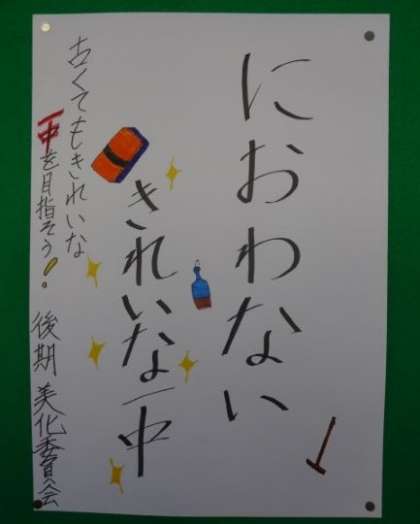 におわない
きれいな一中
古くてもきれいな
一中を目指そう！
後期 美化委員会